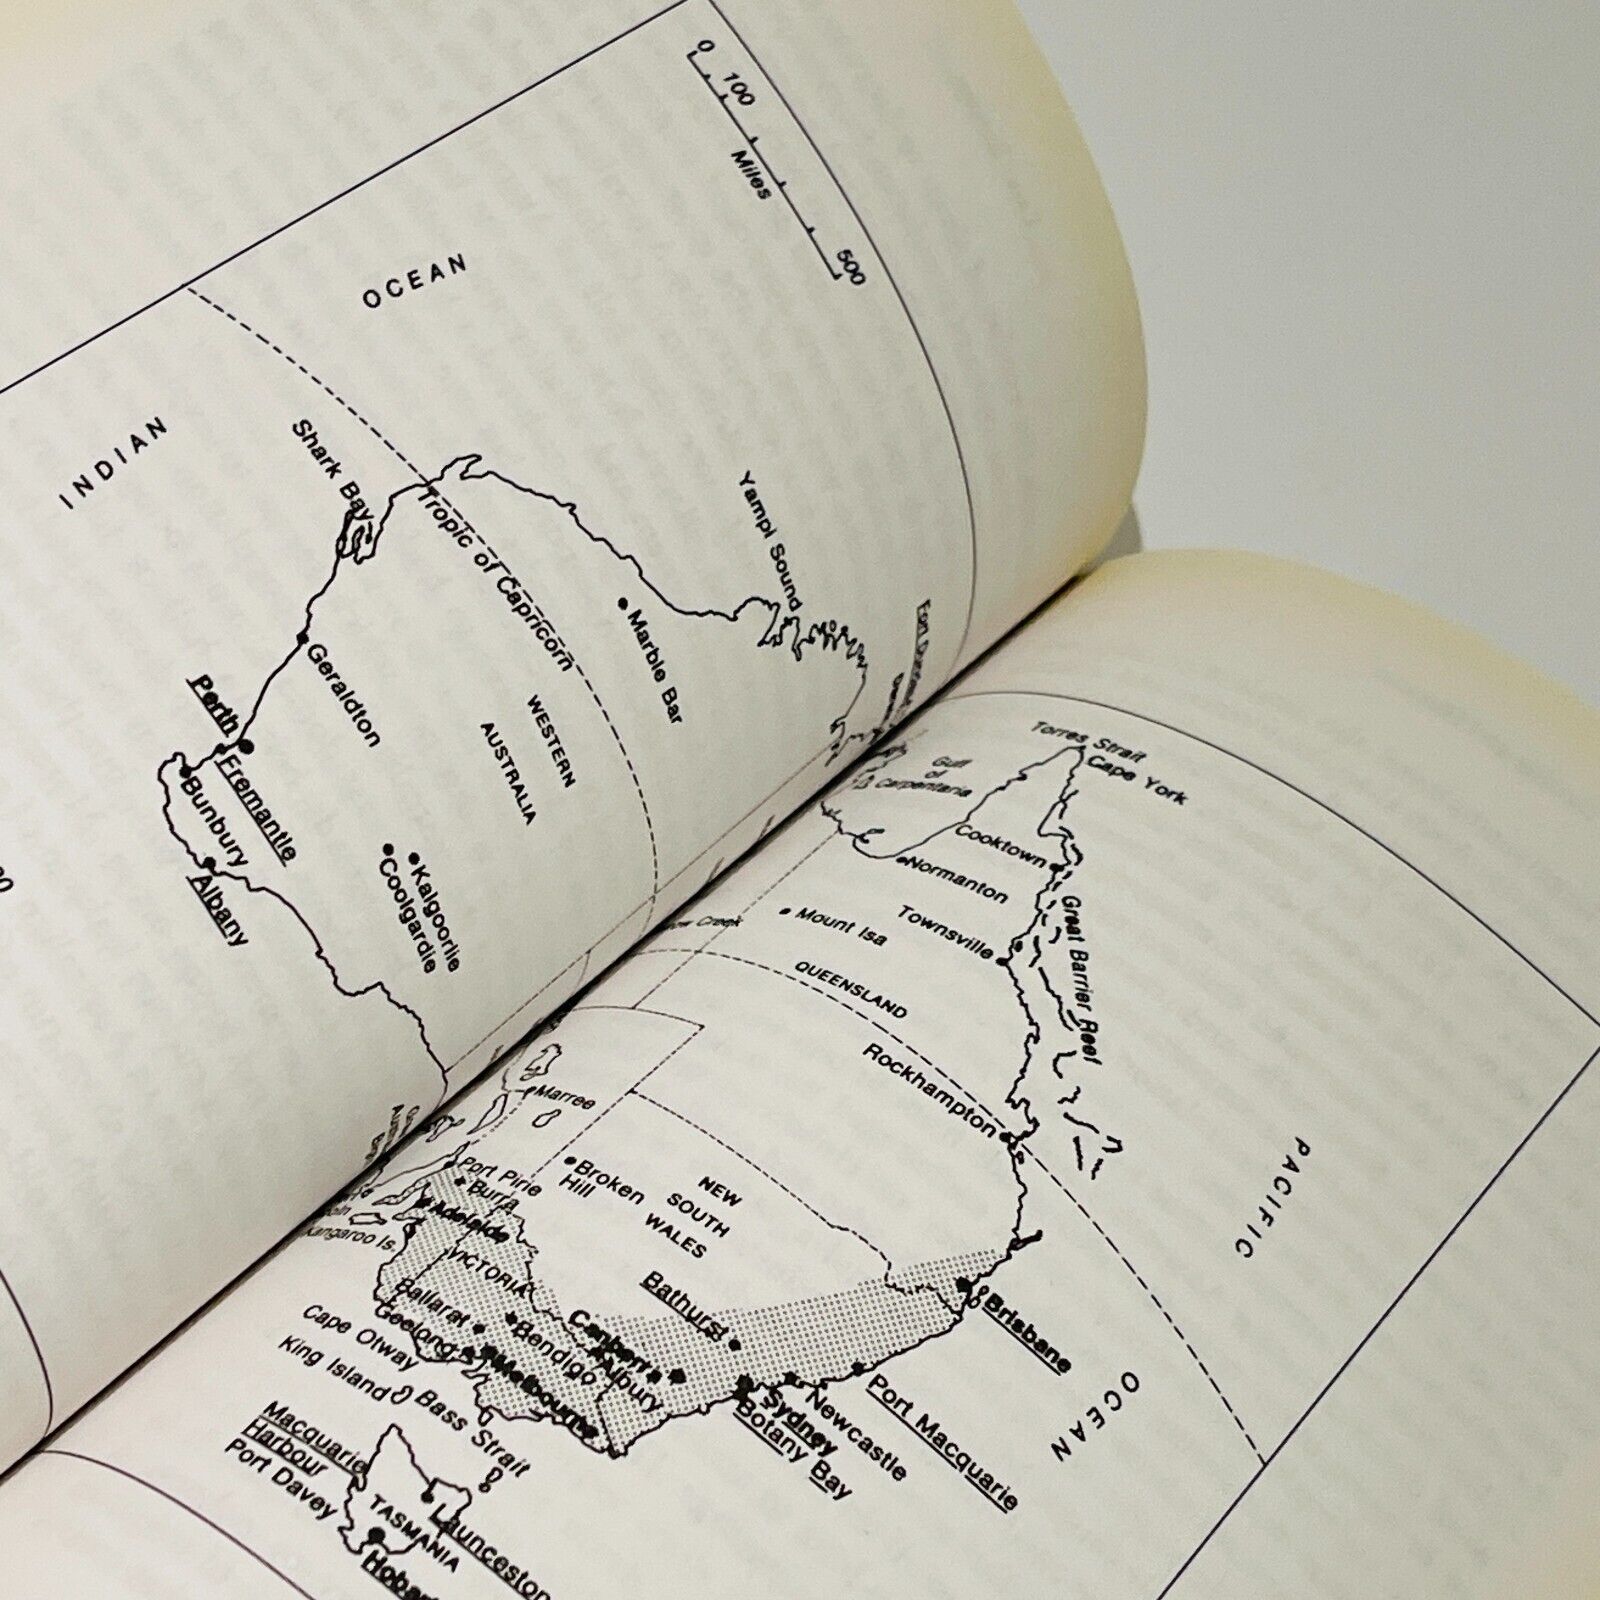 0
100
500
Miles
INDIAN
OCEAN
Shark Bay
Tropic of Capricorn
Yampi Sound
Marble Bar
Geraldton
WESTERN
AUSTRALIA
Perth
Fremantle
Bunbury
Albany
Kalgoorlie
Coolgardie
Torres Strait
Cape York
Gulf
of
Carpentaria
Cooktown
Normanton
Great Barrier Reef
Townsville
Mount Isa
Creek
QUEENSLAND
Rockhampton
PACIFIC
OCEAN
Marree
Port Pirie
Burra
Adelaide
Kangaroo Is.
Broken
Hill
NEW
SOUTH
WALES
VICTORIA
Bathurst
Canberra
Albury
Ballarat
Bendigo
Geelong
Melbourne
Cape Otway
King Island
Bass Strait
Brisbane
Port Macquarie
Newcastle
Sydney
Botany Bay
Macquarie
Harbour
Port Davey
TASMANIA
Launceston